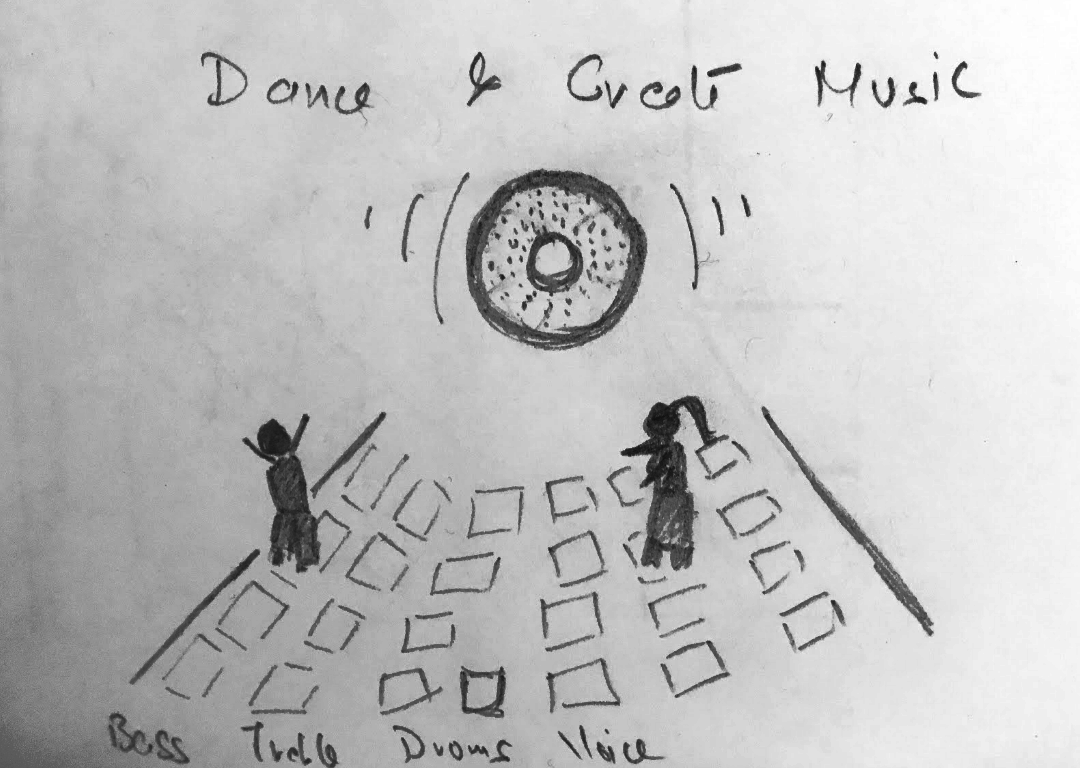 Dance & Create Music
Bass Treble Drums Voice